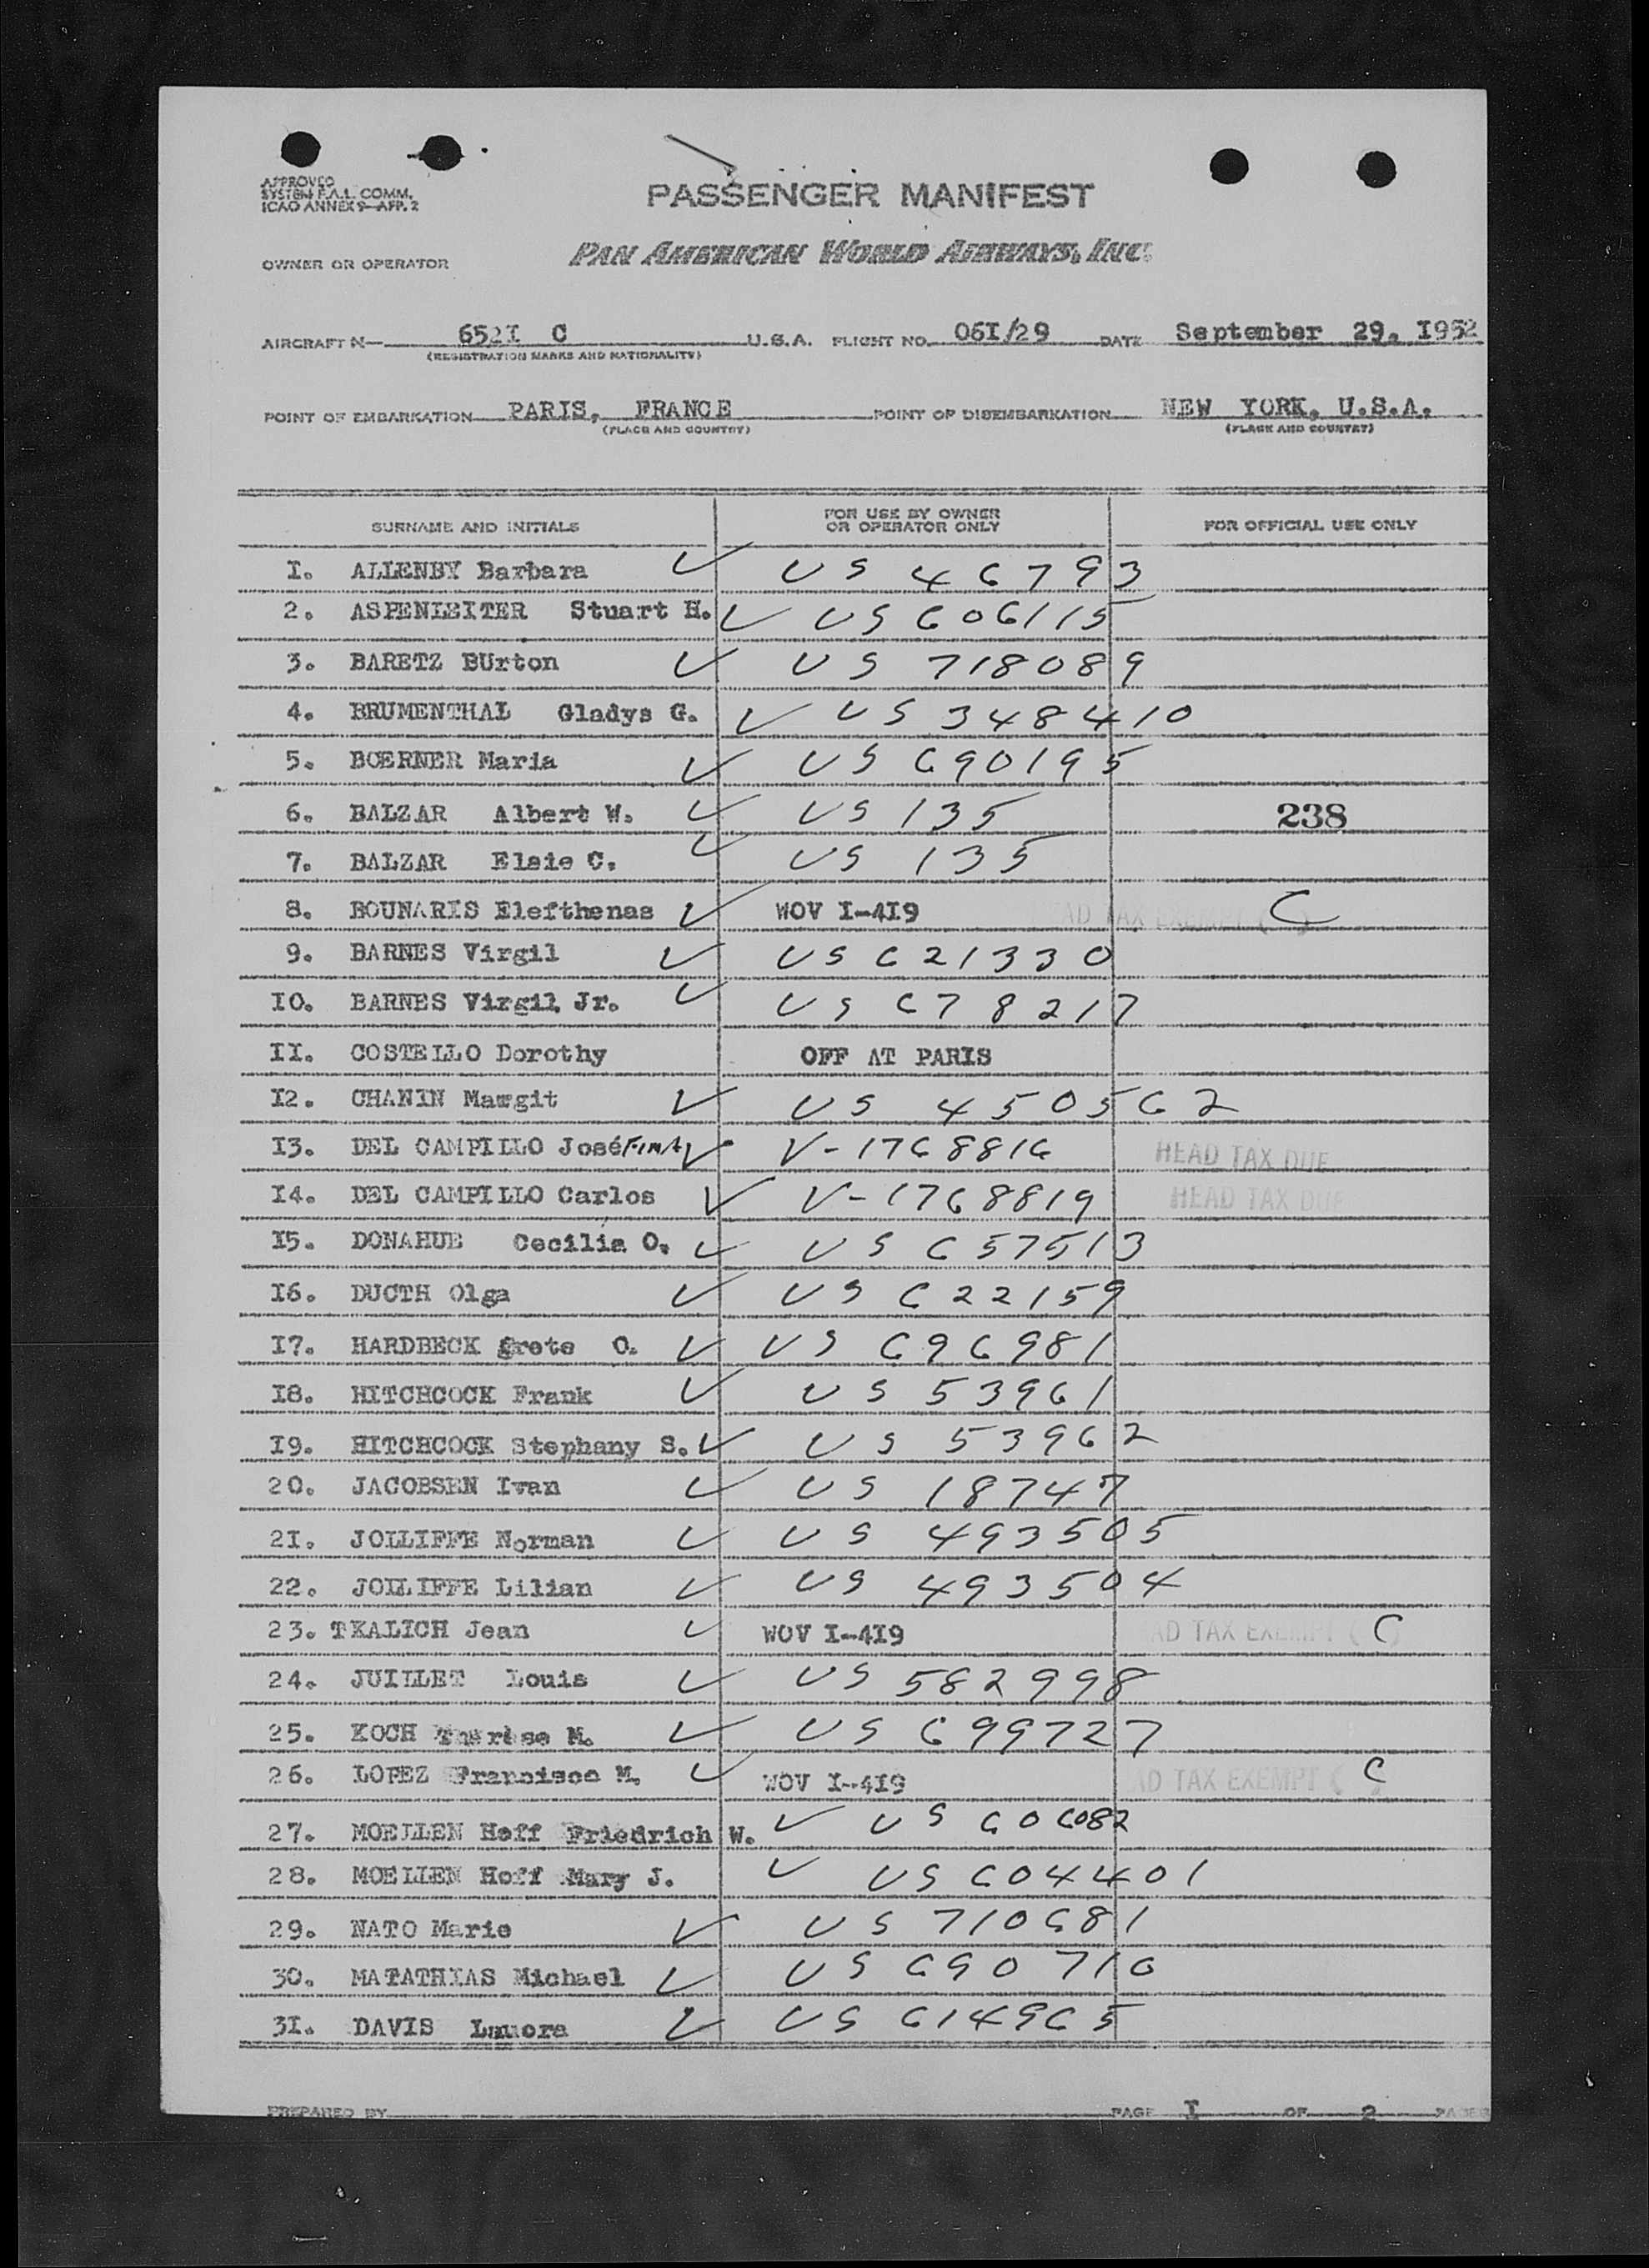 APPROVED
SYSTEM F.A.L. COMM.
ICAO ANNEX 9-APP. 2
PASSENGER MANIFEST
OWNER OR OPERATOR PAN AMERICAN WORLD AIRWAYS, INC.
AIRCRAFT N— 652I C U.S.A. FLIGHT NO. 06I/29 DATE September 29. I952
(REGISTRATION MARKS AND NATIONALITY)
POINT OF EMBARKATION PARIS, FRANCE POINT OF DISEMBARKATION NEW YORK, U.S.A.
(PLACE AND COUNTRY) (PLACE AND COUNTRY)
SURNAME AND INITIALS FOR USE BY OWNER OR OPERATOR ONLY FOR OFFICIAL USE ONLY
I. ALLENBY Barbara ✓ US 46793
2. ASPENLEITER Stuart H. ✓ US 606115
3. BARETZ BUrton ✓ US 718089
4. BRUMENTHAL Gladys G. ✓ US 348410
5. BOERNER Maria ✓ US 690195
6. BALZAR Albert W. ✓ US 135 238
7. BALZAR Elsie C. ✓ US 135
8. BOUNARIS Elefthenas ✓ WOV I-4I9 AD TAX EXEMPT ( C )
9. BARNES Virgil ✓ US 621330
IO. BARNES Virgil Jr. ✓ US 678217
II. COSTELLO Dorothy OFF AT PARIS
I2. CHANIN Mawgit ✓ US 450562
I3. DEL CAMPILLO José ✓ V-1768816 HEAD TAX DUE
I4. DEL CAMPILLO Carlos ✓ V-1768819 HEAD TAX DUE
I5. DONAHUE Cecilia O. ✓ US 657513
I6. DUCTH Olga ✓ US 622159
I7. HARDBECK grete O. ✓ US 696981
I8. HITCHCOCK Frank ✓ US 53961
I9. HITCHCOCK Stephany S. ✓ US 53962
20. JACOBSEN Ivan ✓ US 18747
2I. JOLLIFFE Norman ✓ US 493505
22. JOLLIFFE Lilian ✓ US 493504
23. TKALICH Jean ✓ WOV I-4I9 AD TAX EXEMPT ( C )
24. JUILLET Louis ✓ US 582998
25. KOCH Thérèse M. ✓ US 699727
26. LOPEZ Francisco M. ✓ WOV I-4I9 AD TAX EXEMPT ( C
27. MOELLEN Hoff Friedrich W. ✓ US 606082
28. MOELLEN Hoff Mary J. ✓ US 604401
29. NATO Marie ✓ US 710681
30. MATATHIAS Michael ✓ US 690710
3I. DAVIS ✓ US 614965
PREPARED BY PAGE I OF 2 PAGES